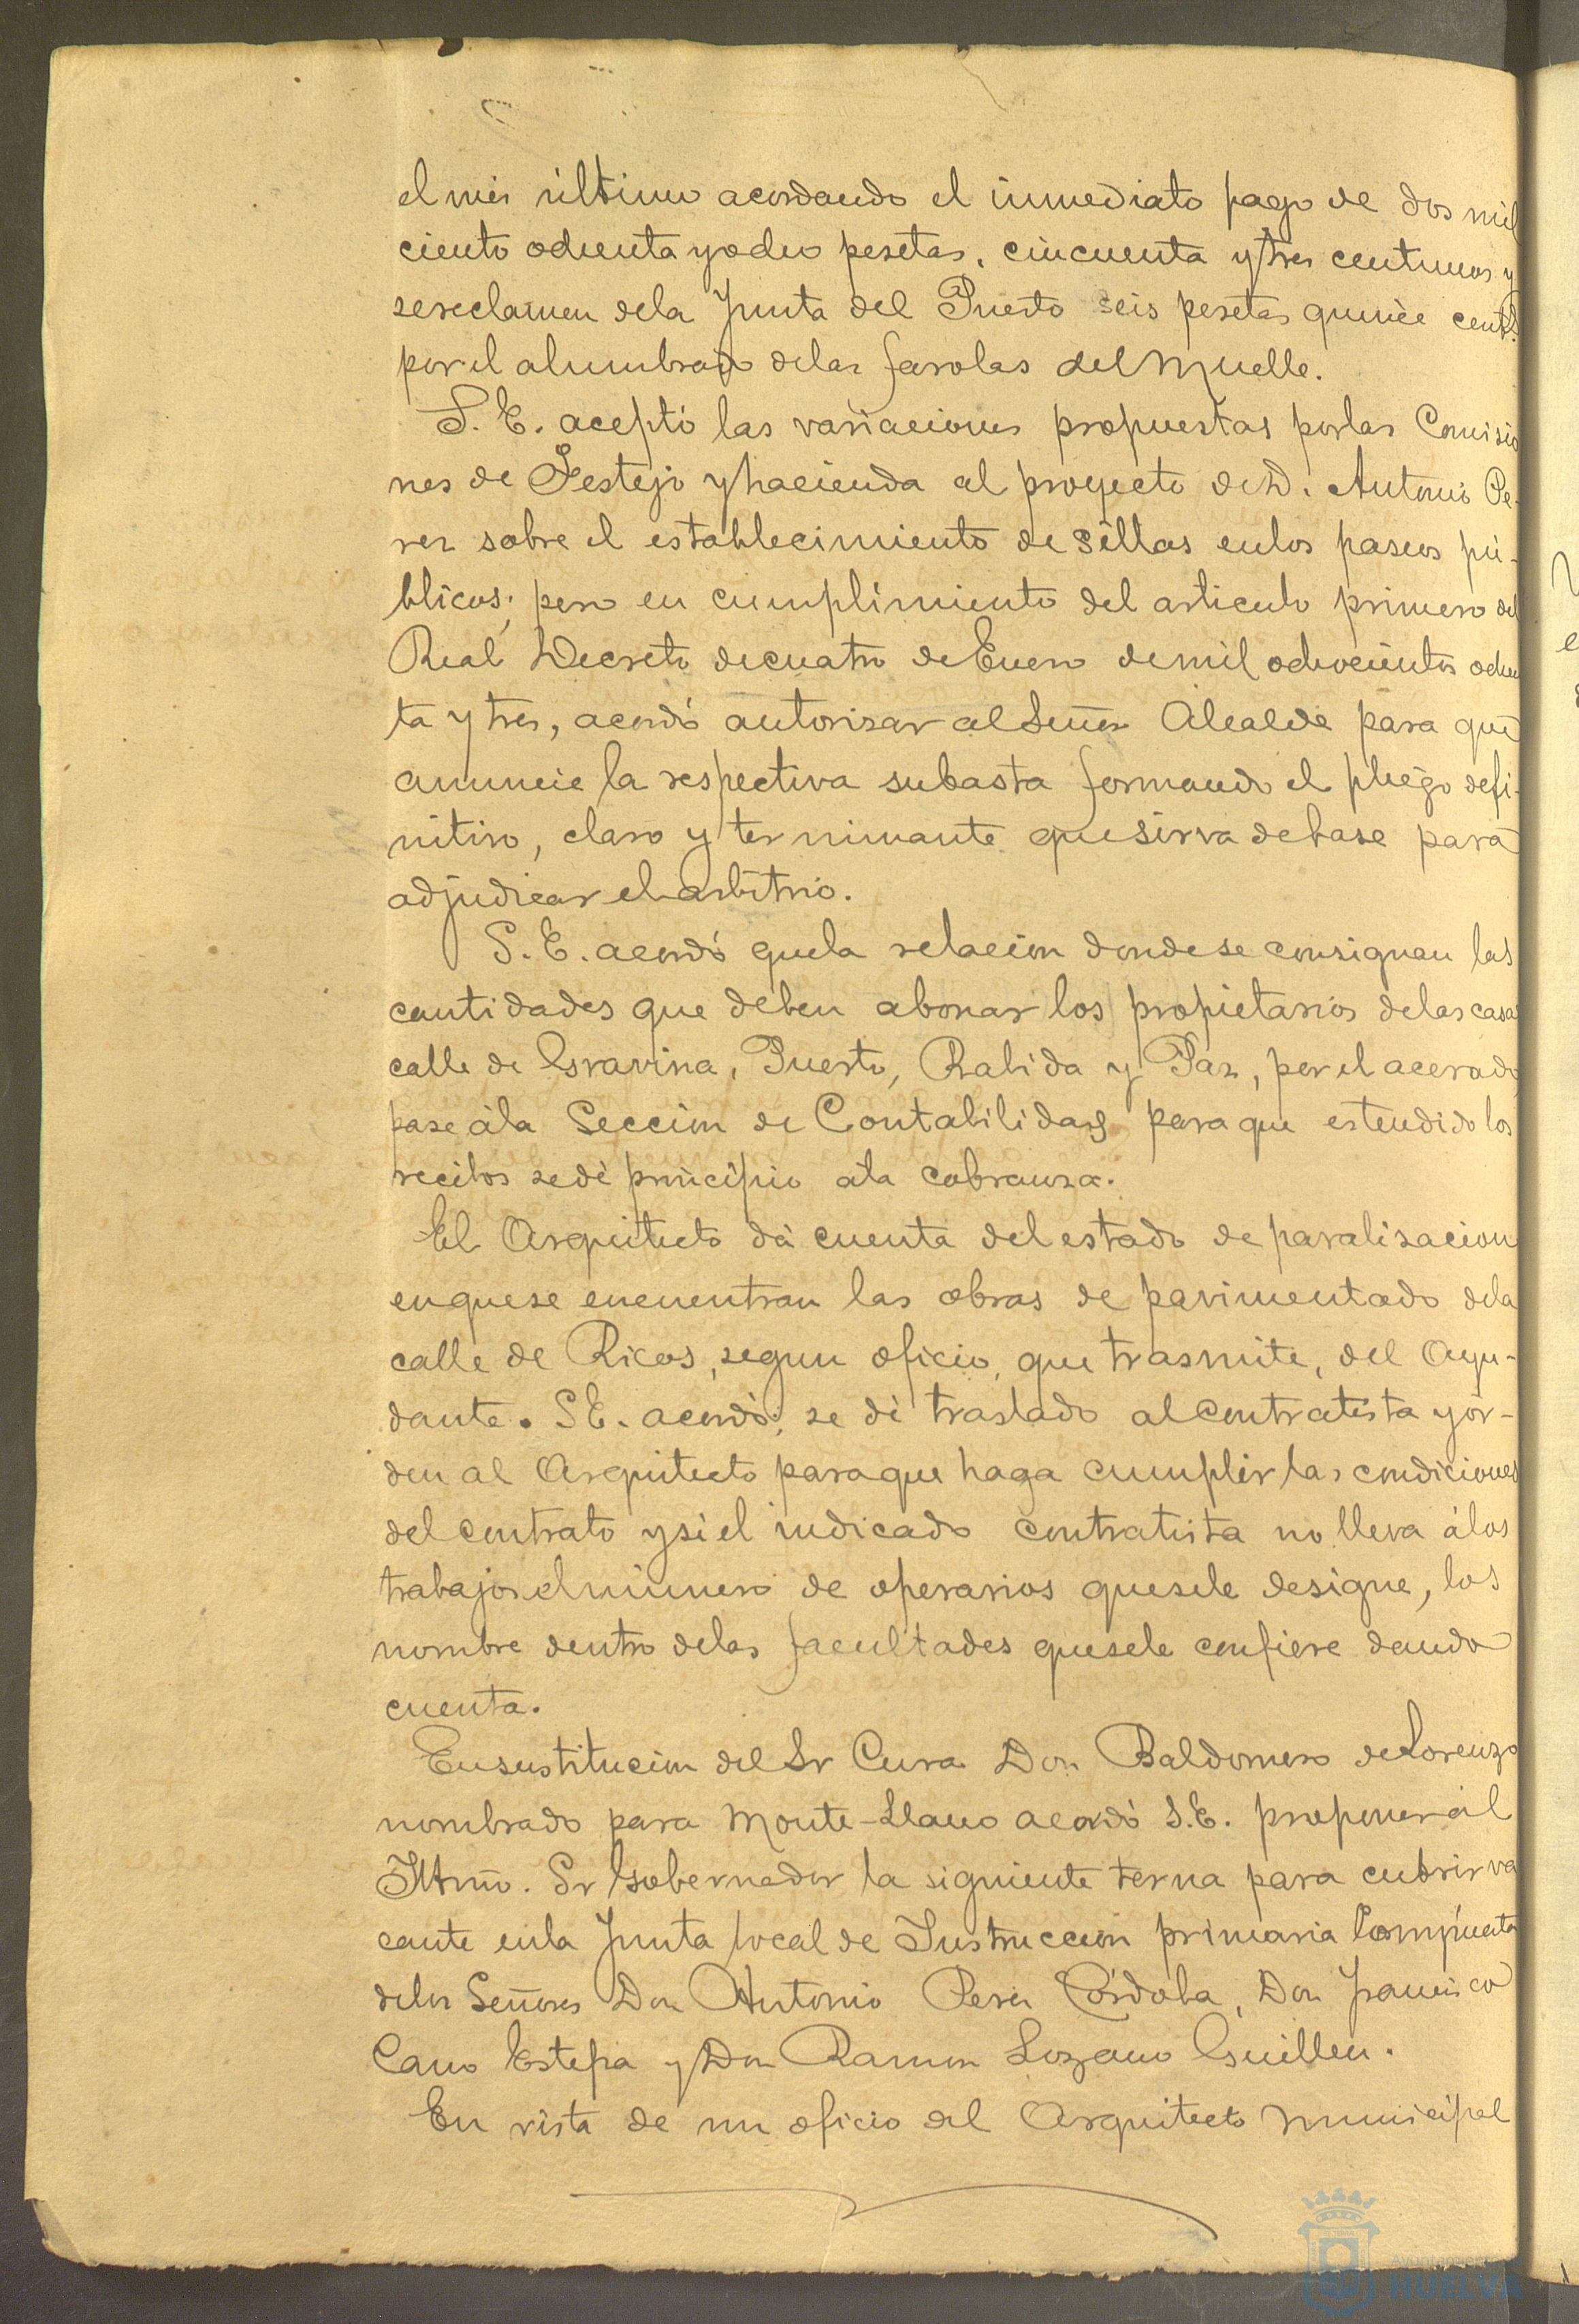 el mes último acordando el inmediato pago de dos mil
ciento ochenta y ocho pesetas, cincuenta y tres centimos y
se reclamen de la Junta del Puerto seis pesetas quince cents.
por el alumbrado de las farolas del Muelle.
S. E. aceptó las variaciones propuestas por las Comisio
nes de Festejo y hacienda al proyecto de D. Antonio Pe-
rez sobre el establecimiento de sillas en los paseos pú-
blicos; pero en cumplimiento del articulo primero del
Real Decreto de cuatro de Enero de mil ochocientos ochen
ta y tres, acordó autorizar al Señor Alcalde para que
anuncie la respectiva subasta formando el pliego defi-
nitivo, claro y terminante que sirva de base para
adjudicar el arbitrio.
S. E. acordó que la relación donde se consignan las
cantidades que deben abonar los propietarios de las casas
calle de Gravina, Puerto, Rabida y Paz, por el acerado,
pase á la Sección de Contabilidad para que estendido los
recibos se dé principio á la cobranza.
El Arquitecto dá cuenta del estado de paralizacion
en que se encuentran las obras de pavimentado de la
calle de Ricos, segun oficio, que trasmite, del Ayu-
dante. S E. acordó; se dé traslado al contratista y or-
den al Arquitecto para que haga cumplir las condiciones
del contrato y si el indicado contratista no lleva á los
trabajos el número de operarios que se le designe, los
nombre dentro de las facultades que se le confiere dando
cuenta.
En sustitución del Sr Cura Don Baldomero de Lorenzo
nombrado para Monte-Llano acordó S. E. proponer al
Iltmo. Sr Gobernador la siguiente terna para cubrir va
cante en la Junta local de Instrucción primaria Compuesta
de los Señores Don Antonio Perez Córdoba, Don Francisco
Cano Estepa y Don Ramon Lozano Guillen.
En vista de un oficio del Arquitecto municipal
Ayuntamiento
HUELVA